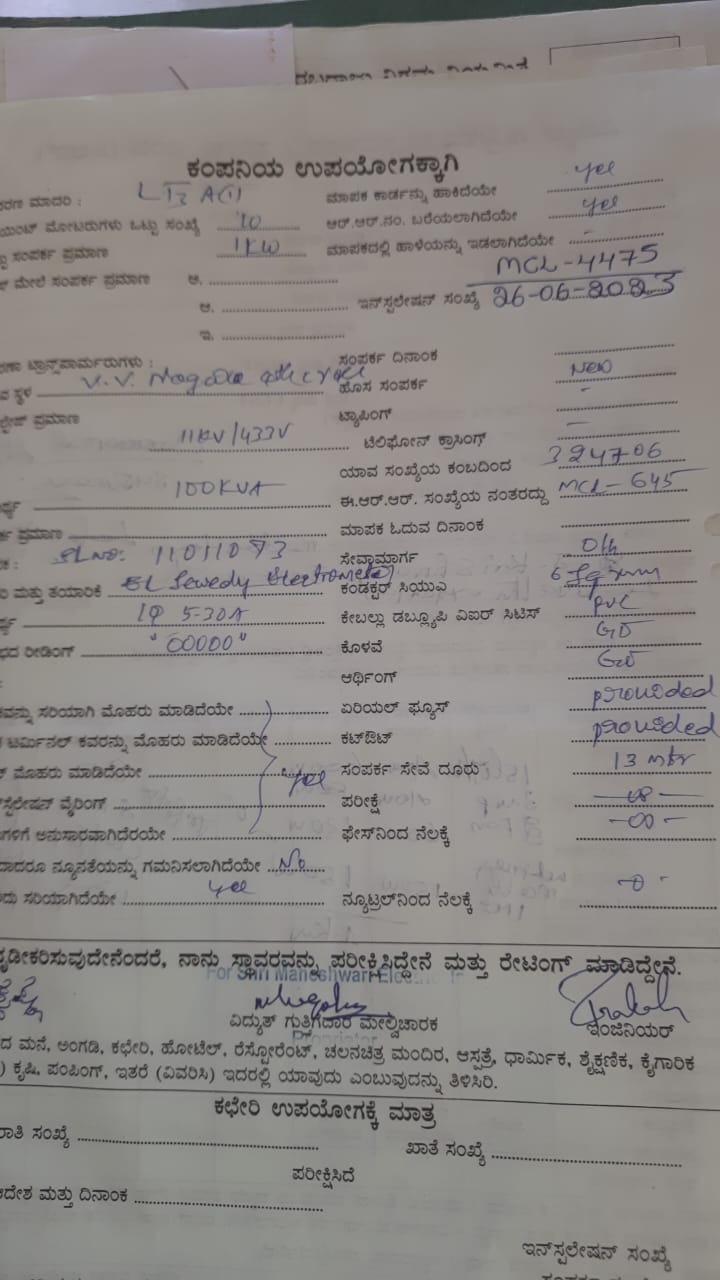 ಕಂಪನಿಯ ಉಪಯೋಗಕ್ಕಾಗಿ
ರಣ ಮಾದರಿ : LT2 A(1) ಮಾಪಕ ಕಾರ್ಡನ್ನು ಹಾಕಿದೆಯೇ yee
ಯಿಂಟ್ ಮೋಟರುಗಳು ಒಟ್ಟು ಸಂಖ್ಯೆ 10 ಆರ್.ಆರ್.ನಂ. ಬರೆಯಲಾಗಿದೆಯೇ yee
ಸಂಪರ್ಕ ಪ್ರಮಾಣ 1KW ಮಾಪಕದಲ್ಲಿ ಹಾಳೆಯನ್ನು ಇಡಲಾಗಿದೆಯೇ -
ಮೇಲೆ ಸಂಪರ್ಕ ಪ್ರಮಾಣ ಅ. MCL-4475
ಆ. ಇನ್‌ಸ್ಟಲೇಷನ್ ಸಂಖ್ಯೆ 26-06-2023
ಇ.
ಟ್ರಾನ್ಸ್‌ಫಾರ್ಮರುಗಳು : ಸಂಪರ್ಕ ದಿನಾಂಕ
ಸ್ಥಳ V.V. ಹೊಸ ಸಂಪರ್ಕ New
ಪ್ರಮಾಣ ಟ್ಯಾಪಿಂಗ್ -
11KV/433V ಟೆಲಿಫೋನ್ ಕ್ರಾಸಿಂಗ್ -
ಯಾವ ಸಂಖ್ಯೆಯ ಕಂಬದಿಂದ 324706
100KVA ಈ.ಆರ್.ಆರ್. ಸಂಖ್ಯೆಯ ನಂತರದ್ದು MCL-645
ಪ್ರಮಾಣ ಮಾಪಕ ಓದುವ ದಿನಾಂಕ
SL NO: ಸೇವಾಮಾರ್ಗ O/h
ಮತ್ತು ತಯಾರಿಕೆ EL Sewedy Electrometer ಕಂಡಕ್ಟರ್ ಸಿಯುವಿ 6 Sq mm
1Φ 5-30A ಕೇಬಲ್ಲು ಡಬ್ಲ್ಯೂಪಿ ವಿಐರ್ ಸಿಟಿಸ್ PVC
ರೀಡಿಂಗ್ "00000" ಕೊಳವೆ GI
ಆರ್ಥಿಂಗ್ GI
ವನ್ನು ಸರಿಯಾಗಿ ಮೊಹರು ಮಾಡಿದೆಯೇ ಏರಿಯಲ್ ಫ್ಯೂಸ್ provided
ಟರ್ಮಿನಲ್ ಕವರನ್ನು ಮೊಹರು ಮಾಡಿದೆಯೇ ಕಟ್‌ಔಟ್ provided
ಮೊಹರು ಮಾಡಿದೆಯೇ yee ಸಂಪರ್ಕ ಸೇವೆ ದೂರು 13 mtr
ವೈರಿಂಗ್ ಪರೀಕ್ಷೆ
ಗಳಿಗೆ ಅನುಸಾರವಾಗಿದೆರಯೇ ಫೇಸ್‌ನಿಂದ ನೆಲಕ್ಕೆ
ದಾದರೂ ನ್ಯೂನತೆಯನ್ನು ಗಮನಿಸಲಾಗಿದೆಯೇ No
ದು ಸರಿಯಾಗಿದೆಯೇ yee ನ್ಯೂಟ್ರಲ್‌ನಿಂದ ನೆಲಕ್ಕೆ -0-
ೃಡೀಕರಿಸುವುದೇನೆಂದರೆ, ನಾನು ಸ್ಥಾವರವನ್ನು ಪರೀಕ್ಷಿಸಿದ್ದೇನೆ ಮತ್ತು ರೇಟಿಂಗ್ ಮಾಡಿದ್ದೇನೆ.
For Shri Maheshwari
ವಿದ್ಯುತ್ ಗುತ್ತಿಗೆದಾರ ಮೇಲ್ವಿಚಾರಕ ಇಂಜಿನಿಯರ್
Proprietor
ದ ಮನೆ, ಅಂಗಡಿ, ಕಛೇರಿ, ಹೋಟೆಲ್, ರೆಸ್ಟೋರೆಂಟ್, ಚಲನಚಿತ್ರ ಮಂದಿರ, ಆಸ್ಪತ್ರೆ, ಧಾರ್ಮಿಕ, ಶೈಕ್ಷಣಿಕ, ಕೈಗಾರಿಕ
) ಕೃಷಿ, ಪಂಪಿಂಗ್, ಇತರೆ (ವಿವರಿಸಿ) ಇದರಲ್ಲಿ ಯಾವುದು ಎಂಬುವುದನ್ನು ತಿಳಿಸಿರಿ.
ಕಛೇರಿ ಉಪಯೋಗಕ್ಕೆ ಮಾತ್ರ
ಸಂಖ್ಯೆ ಖಾತೆ ಸಂಖ್ಯೆ
ಪರೀಕ್ಷಿಸಿದೆ
ಆದೇಶ ಮತ್ತು ದಿನಾಂಕ
ಇನ್‌ಸ್ಟಲೇಷನ್ ಸಂಖ್ಯೆ